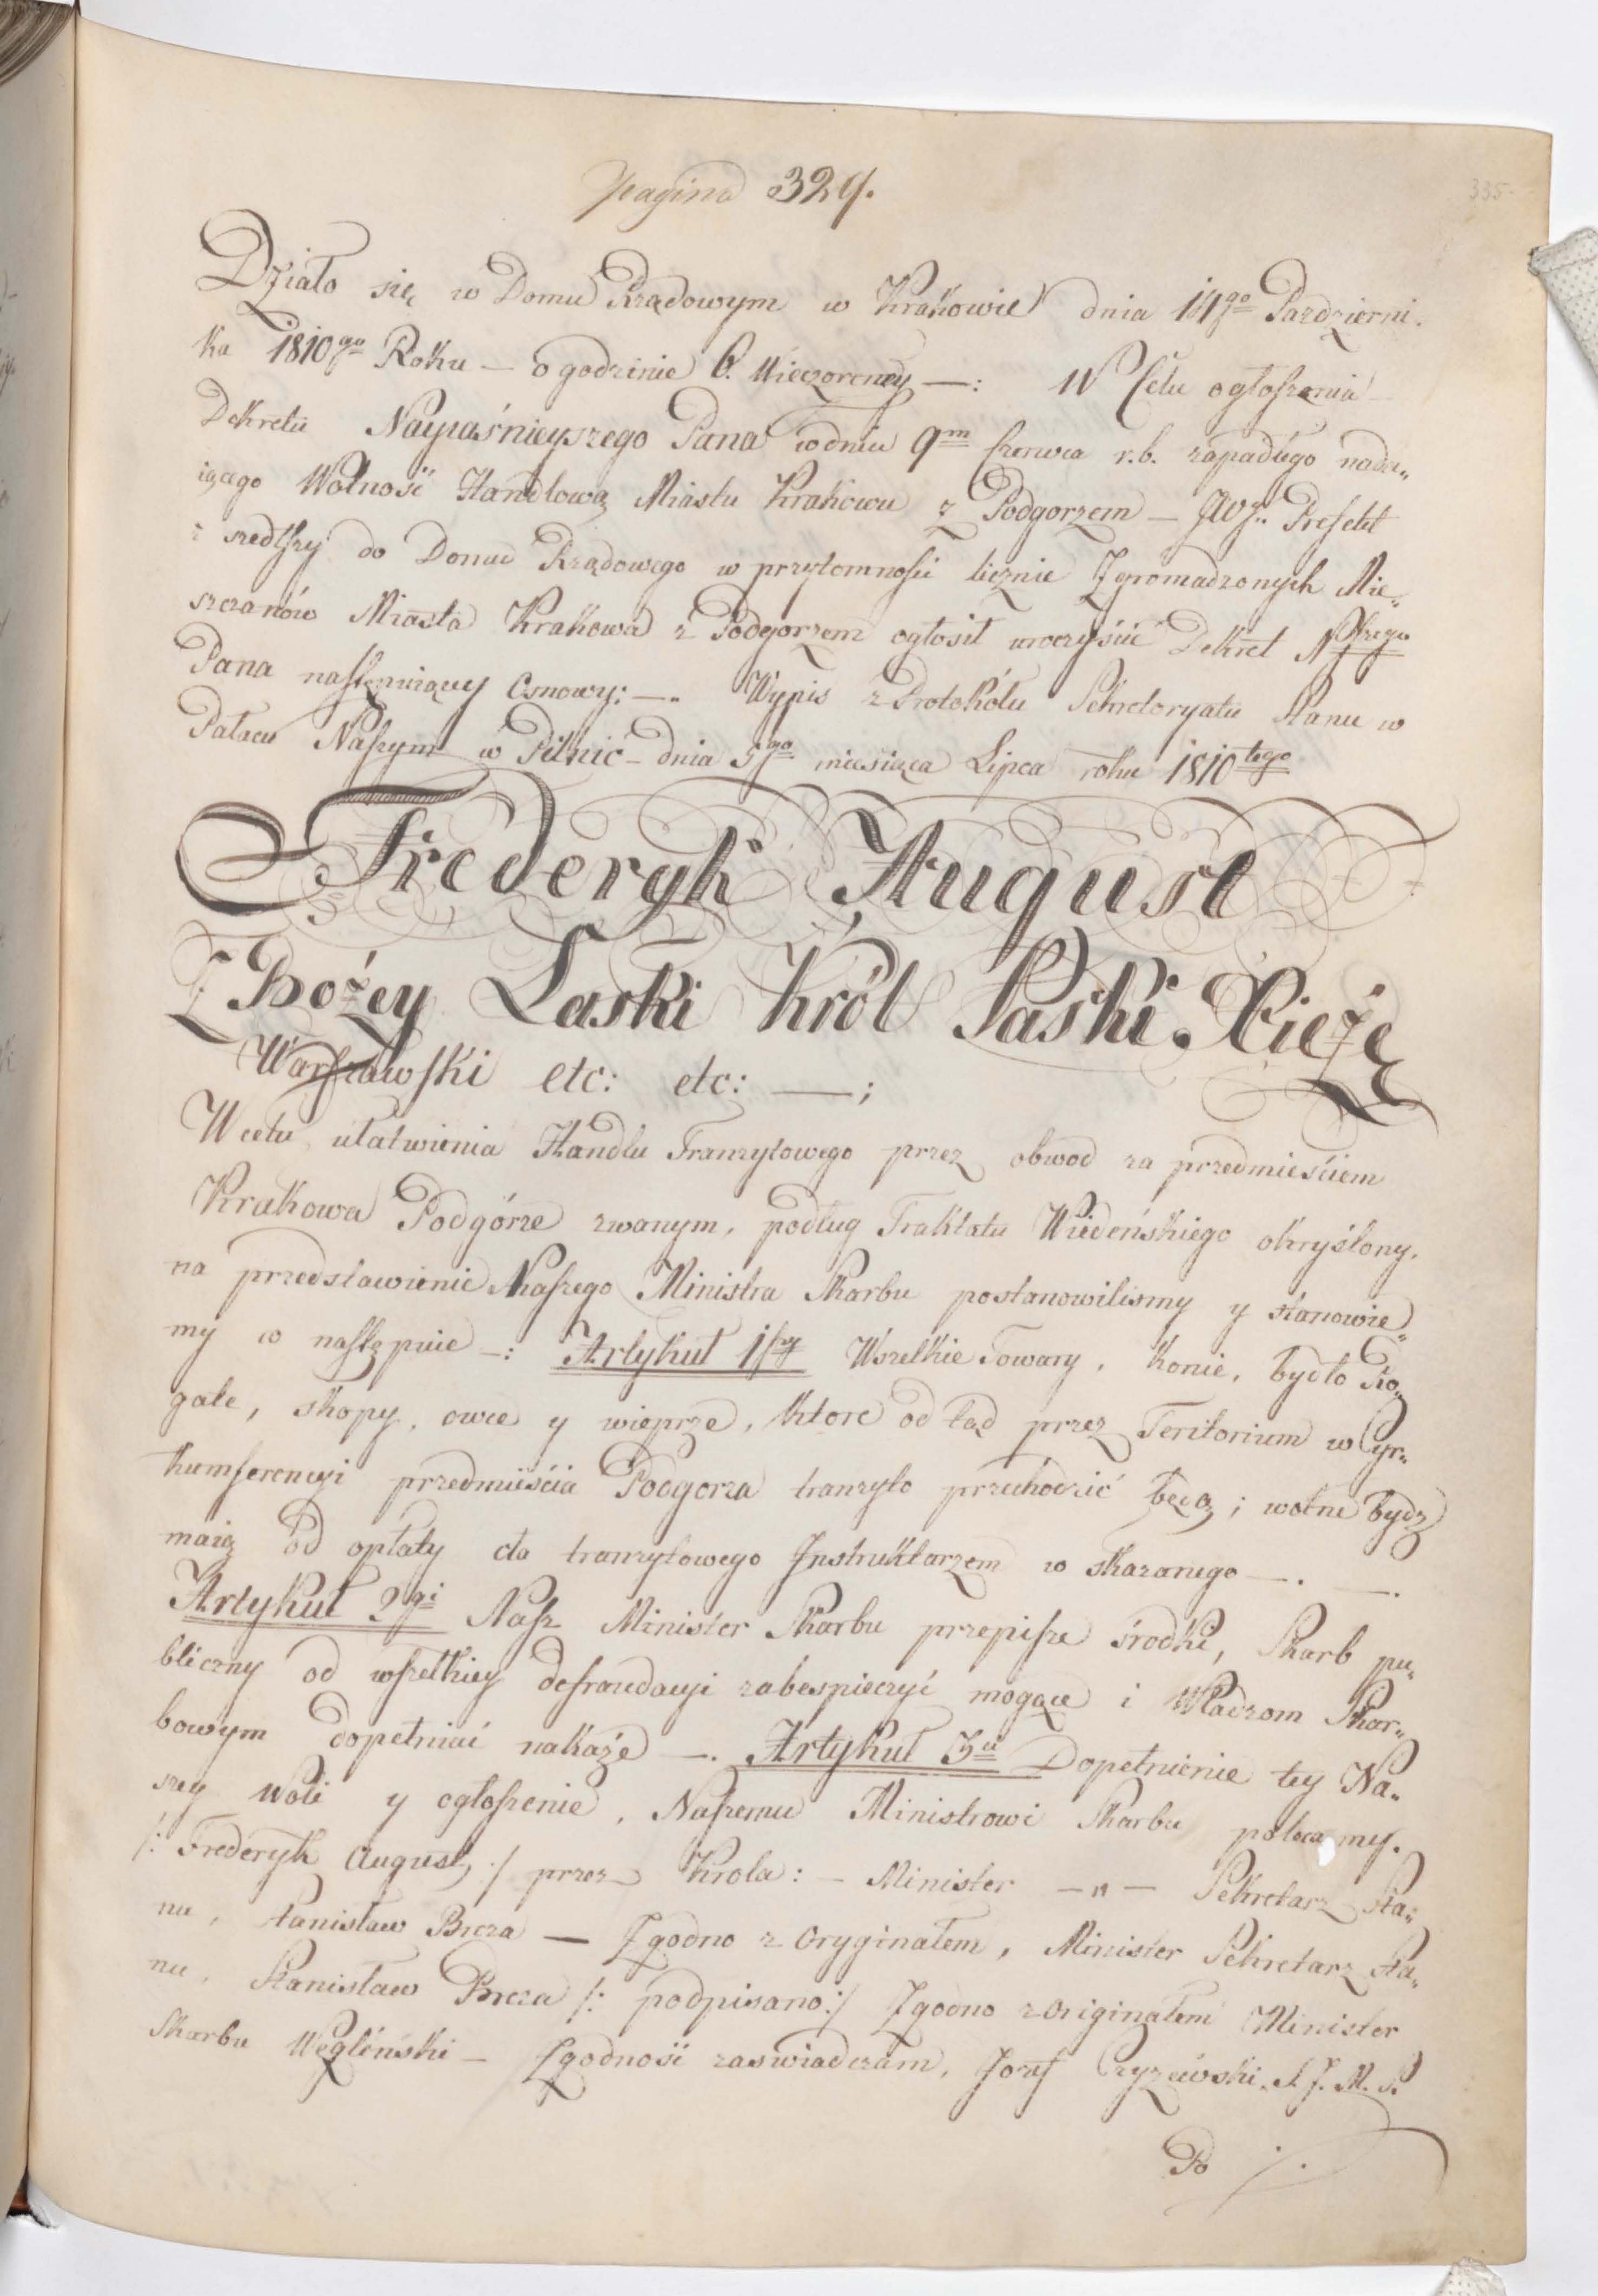 Pagina 329.
335.
Działo się w Domu Rządowym w Krakowie dnia 14go Pazdzierni.
ka 1810go Roku — o godzinie 6. Wieczorney —: W Celu ogłoszenia
Dekretu Nayiaśnieyszego Pana w dniu 9m Czerwca r.b. zapadłego nada„
iącego Wolność Handlową Miastu Krakowu z Podgorzem — JW Prefekt
zszedłszy do Domu Rządowego w przytomności licznie Zgromadzonych Mie„
szczanów Miasta Krakowa z Podgorzem ogłosił uroczyście Dekret Nszego
Pana następuiącey Osnowy: —. Wypis z Protokółu Sekretaryatu Stanu w
Pałacu Naszym w Pilnic — dnia 5go miesiąca Lipca roku 1810tego
Frederyk August
Z Bożey Łaski Król Saski. Xieżę
Warszawski etc: etc: —;
W celu ułatwienia Handlu Tranzytowego przez obwod za przedmieściem
Krakowa Podgórze zwanym, podług Traktatu Wiedeńskiego okryślony,
na przedstawienie Naszego Ministra Skarbu postanowilismy y stanowie„
my co następuie —: Artykuł 1szy Wszelkie Towary, konie, bydło Ro„
gate, skopy, owce y wieprze, ktore od tąd przez Teritorium w Cyr„
kumferencyi przedmieścia Podgorza tranzyto przechodzić będą; wolne bydz
maią od opłaty cła tranzytowego Instruktarzem w skazanego —. —.
Artykuł 2gi Nasz Minister Skarbu przepisze środki, Skarb pu„
bliczny od wszelkiey defraudacyi zabespieczyć mogące i Władzom Skar„
bowym dopełniać nakaże —. Artykuł 3ci Dopełnienie tey Na„
szey Woli y ogłoszenie, Naszemu Ministrowi Skarbu polecamy.
/: Frederyk August :/ przez Krola: — Minister — „ — Sekretarz Sta„
nu, Stanisław Breza — Zgodno z Oryginałem, Minister Sekretarz Sta„
nu, Stanisław Breza /: podpisano:/ Zgodno z Originałem Minister
Skarbu Węgleński — Zgodność zaswiadczam, Jozef Czyżewski. S. J. M. S.
Po